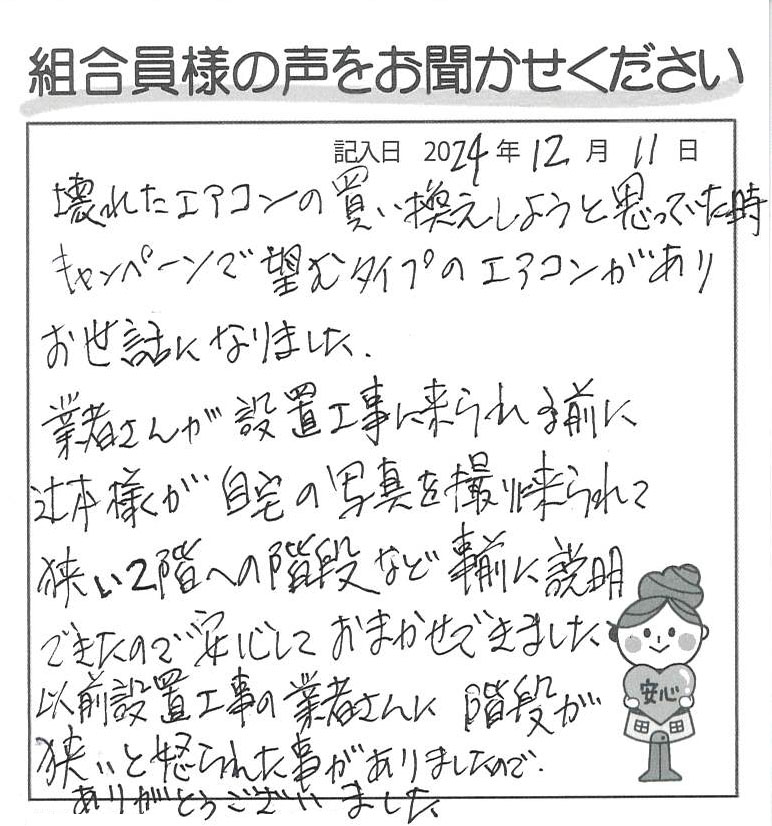 組合員様の声をお聞かせください
記入日 2024年12月11日
壊れたエアコンの買い換えしようと思っていた時
キャンペーンで望むタイプのエアコンがあり
お世話になりました.
業者さんが設置工事に来られる前に
辻本様が自宅の写真を撮りに来られて
狭い2階への階段など事前に説明
できたので安心しておまかせできました
以前設置工事の業者さんに階段が
狭いと怒られた事がありましたので.
ありがとうございました
安心